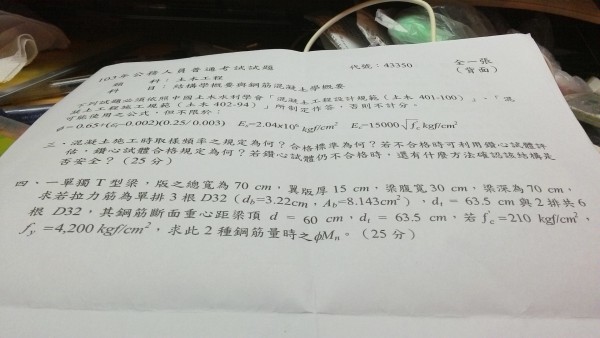 103年公務人員普通考試試題
代號：43350
全一張
（背面）
類　科：土木工程
科　目：結構學概要與鋼筋混凝土學概要
下列試題必須依照中國土木水利學會「混凝土工程設計規範（土木 401-100）」、「混
凝土工程施工規範（土木 402-94）」所制定作答，否則不計分。
可能使用之公式，但不限於：
ϕ = 0.65+(εt-0.002)(0.25/ 0.003)　Es=2.04x10⁶ kgf/cm²　Ec=15000√f'c kgf/cm²
三、混凝土施工時取樣頻率之規定為何？合格標準為何？若不合格時可利用鑽心試體評
估，鑽心試體合格規定為何？若鑽心試體仍不合格時，還有什麼方法確認該結構是
否安全？（25 分）
四、一單獨 T 型梁，版之總寬為 70 cm，翼版厚 15 cm，梁腹寬 30 cm，梁深為 70 cm，
求若拉力筋為單排 3 根 D32（db=3.22cm，Ab=8.143cm²），dt = 63.5 cm 與 2 排共 6
根 D32，其鋼筋斷面重心距梁頂 d = 60 cm，dt = 63.5 cm，若 f'c=210 kgf/cm²，
fy =4,200 kgf/cm²，求此 2 種鋼筋量時之ϕMn。（25 分）